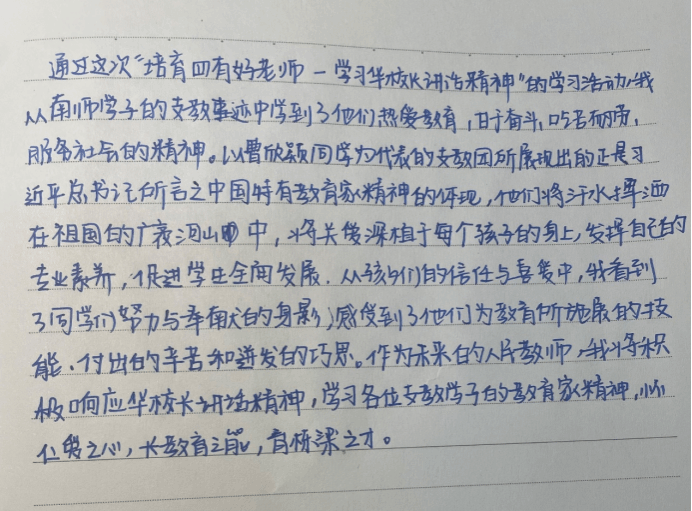 通过这次“培育四有好老师－学习华校长讲话精神”的学习活动，我
从南师学子的支教事迹中学到了他们热爱教育，甘于奋斗，吃苦耐劳，
服务社会的精神。以曹欣颖同学为代表的支教团所展现出的正是习
近平总书记所言之中国特有教育家精神的体现，他们将汗水挥洒
在祖国的广袤河山中，将关爱深植于每个孩子的身上，发挥自己的
专业素养，促进学生全面发展．从孩子们的信任与喜爱中，我看到
了同学们努力与奉献的身影，感受到了他们为教育所施展的技
能、付出的辛苦和迸发的巧思。作为未来的人民教师，我将积
极响应华校长讲话精神，学习各位支教学子的教育家精神，怀
仁爱之心，长教育之能，育栋梁之才。